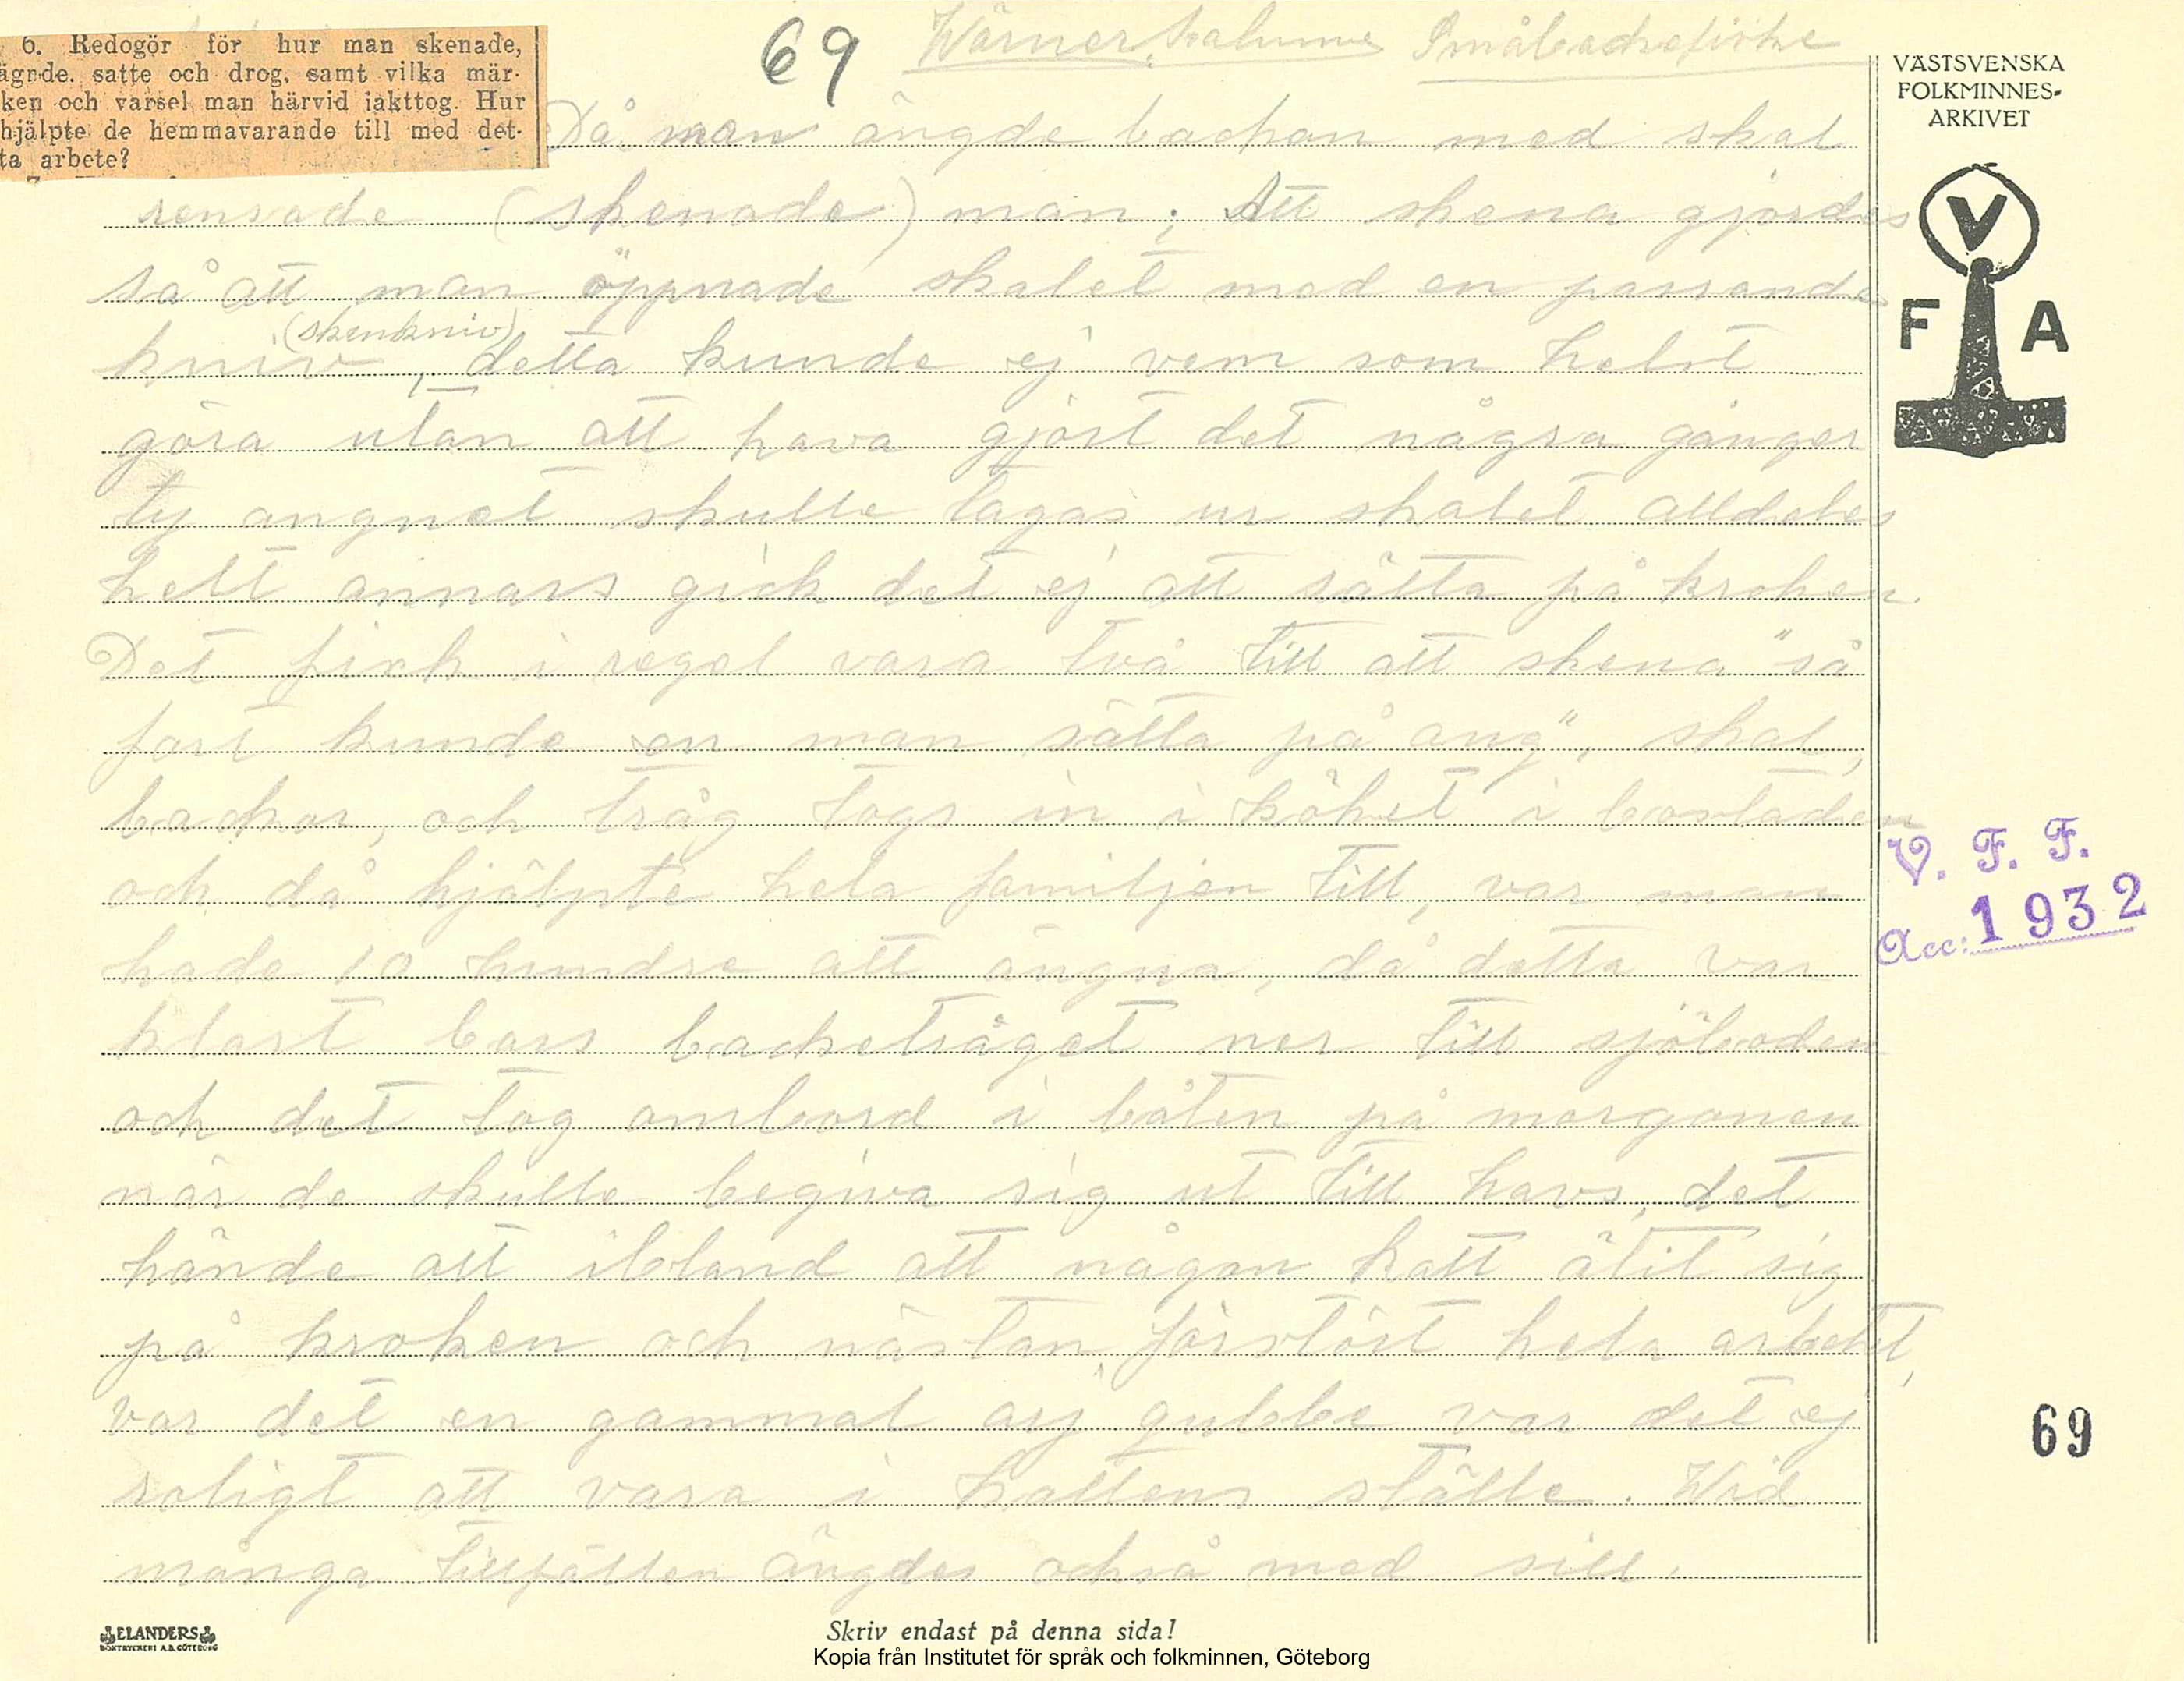 6. Redogör för hur man skenade,
ägnde, satte och drog, samt vilka mär-
ken och varsel man härvid iakttog. Hur
hjälpte de hemmavarande till med det-
ta arbete?
69
Wärner Småbackefiske
VÄSTSVENSKA
FOLKMINNES-
ARKIVET
V
F A
Då man ängde backan med skal
rensade (skenade) man; Att skena gjordes
så att man öppnade skalet med en passande
(skenkniv)
kniv, detta kunde ej vem som helst
göra utan att hava gjort det några gånger
ty angnet skulle tagas ur skalet alldeles
helt annars gick det ej att sätta på kroken.
Det fick i regel vara två till att skena "så
fort kunde en man sätta på ang", skal,
backor, och tråg togs in i köket i bostaden
och då hjälpte hela familjen till, var man
hade 10 hundre att ängna, då detta var
klart bars backetråget ner till sjöboden
och det tog ombord i båten på morgonen
när de skulle begiva sig ut till havs, det
hände att ibland att någon katt ätit sig
på kroken och nästan förstört hela arbetet,
var det en gammal arj gubbe var det ej
roligt att vara i kattens ställe. Wid
många tillfällen ängdes också med sill.
V. F. F.
Acc: 1932
69
ELANDERS
BOKTRYCKERI A.B. GÖTEBORG
Skriv endast på denna sida!
Kopia från Institutet för språk och folkminnen, Göteborg